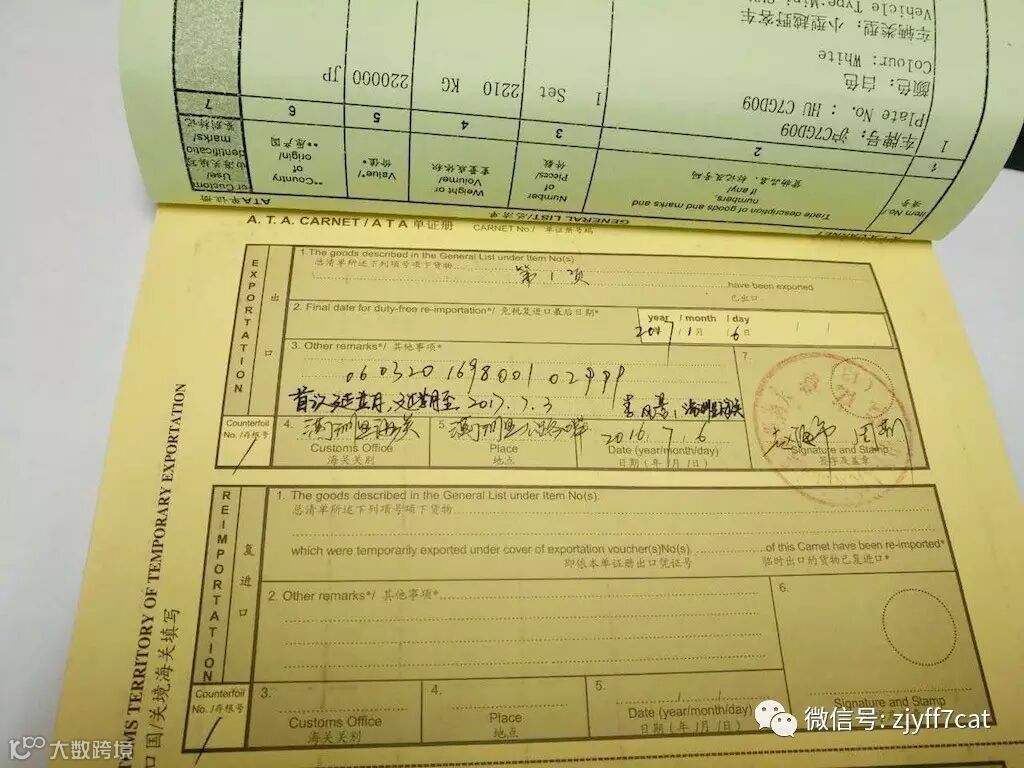 Vehicle Type:
车辆类型: 小型越野客车
Colour: White
颜色: 白色
Plate No. : HU C7GD09
1 车牌号: 沪C7GD09
1 Set
2210 KG
220000
JP
1 2 3 4 5 6 7
Item No./
项号
Trade description of goods and marks and
numbers,
if any/
货物品名、标记及号码
Number
of
Pieces/
件数
Weight or
Volume/
重量或体积
Value*/
价值*
**Country
of
origin/
**原产国
Use/
marks/
GENERAL LIST/总清单
ATA单证册
A. T. A. CARNET / A T A 单证册 CARNET No./ 单证册号码
EXPORTATION
出口
1.The goods described in the General List under Item No(s)
总清单所述下列项号项下货物 第 1 项
have been exported
已出口
2. Final date for duty-free re-importation*/ 免税复进口最后日期*
year / month / day
2017 1月 6日
3. Other remarks*/ 其他事项*
2017.7.3
7.
Counterfoil
No. /存根号
1
4.
Customs Office
海关关别
5.
Place
地点
2016. 7. 6
Date (year/month/day)
日期 (年 /月 /日)
Signature and Stamp
签字及盖章
REIMPORTATION
复进口
1. The goods described in the General List under Item No(s).
总清单所述下列项号项下货物
which were temporarily exported under cover of exportation voucher(s)No(s). of this Carnet have been re-imported*
即依本单证册出口凭证号 临时出口的货物已复进口*
2. Other remarks*/ 其他事项*
6.
Counterfoil
No. /存根号
1
3.
Customs Office
海关关别
4.
Place
地点
5.
Date (year/month/day)
日期 (年 /月 /日)
Signature and Stamp
MS TERRITORY OF TEMPORARY EXPORTATION
口国关境海关填写
微信号: zjyff7cat
大数跨境